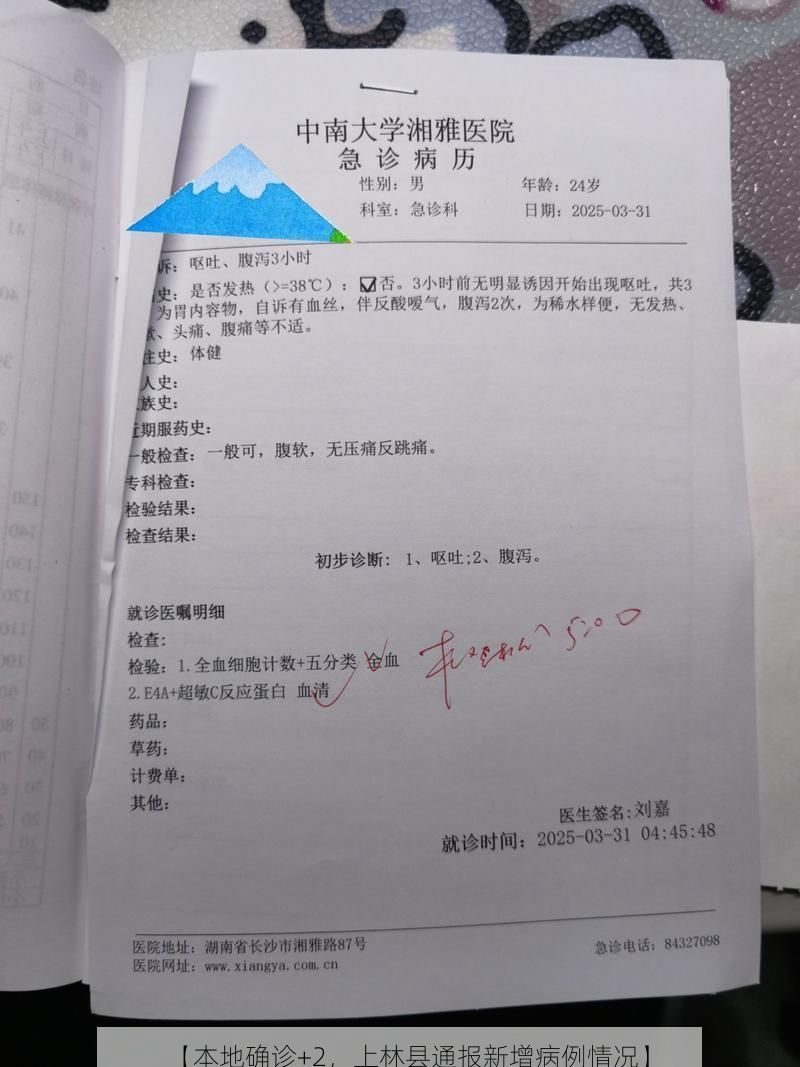 中南大学湘雅医院
急诊病历
性别: 男 年龄: 24岁
科室: 急诊科 日期: 2025-03-31
诉: 呕吐、腹泻3小时
史: 是否发热(>=38℃): ☑否。3小时前无明显诱因开始出现呕吐，共3
为胃内容物，自诉有血丝，伴反酸嗳气，腹泻2次，为稀水样便，无发热、
、头痛、腹痛等不适。
往史: 体健
人史:
族史:
近期服药史:
一般检查: 一般可，腹软，无压痛反跳痛。
专科检查:
检验结果:
检查结果:
初步诊断: 1、呕吐;2、腹泻。
就诊医嘱明细
检查:
检验: 1.全血细胞计数+五分类 全血
2.E4A+超敏C反应蛋白 血清
5:00
药品:
草药:
计费单:
其他:
医生签名:刘嘉
就诊时间: 2025-03-31 04:45:48
医院地址: 湖南省长沙市湘雅路87号 急诊电话: 84327098
医院网址: www.xiangya.com.cn
【本地确诊+2，上林县通报新增病例情况】